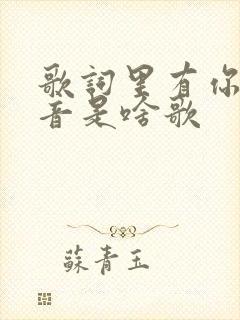 歌詞里有你
音是啥歌
蘇青玉